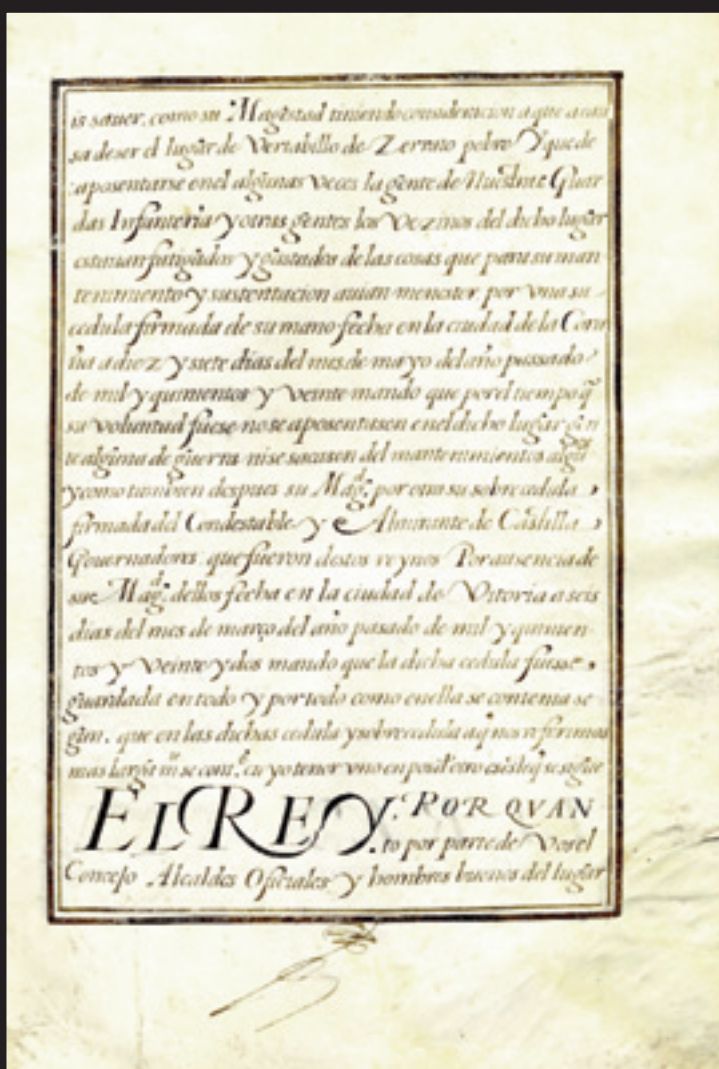 is sauer, como su Magestad tiniendo consideracion a que a cau
sa de ser el lugar de Vertabillo de Zerrato pobre Y que de
aposentarse en el algunas veces la gente de Nuestras Guar
das Infanteria y otras gentes los Vezinos del dicho lugar
estauan fatigados y gastados de las cosas que para su man
tenimiento y sustentacion auian menester, por vna su
cedula firmada de su mano fecha en la ciudad de la Coru
ña a diez y siete dias del mes de mayo del año passado
de mil y quinientos y veinte mando que por el tiempo q̃
su voluntad fuese no se aposentasen en el dicho lugar gẽ n
te alguna de guerra ni se sacasen del mantenimientos algũos
y como tambien despues su Magd. por otra su sobrecedula
firmada del Condestable y Almirante de Castilla
Gouernadores que fueron destos reynos Por ausencia de
su Magd. dellos fecha en la ciudad de Vitoria a seis
dias del mes de março del año pasado de mil y quinien-
tos y veinte y dos mando que la dicha cedula fuesse
guardada en todo y por todo como en ella se contenia se
gun, que en las dichas cedula y sobrecedula a q̃ nos referimos
mas larga mte se contẽ. cuyo tenor vno en pos otro es este q̃ se sigue
EL REY. POR QVAN
to por parte de Vos el
Concejo Alcaldes Oficiales y hombres buenos del lugar